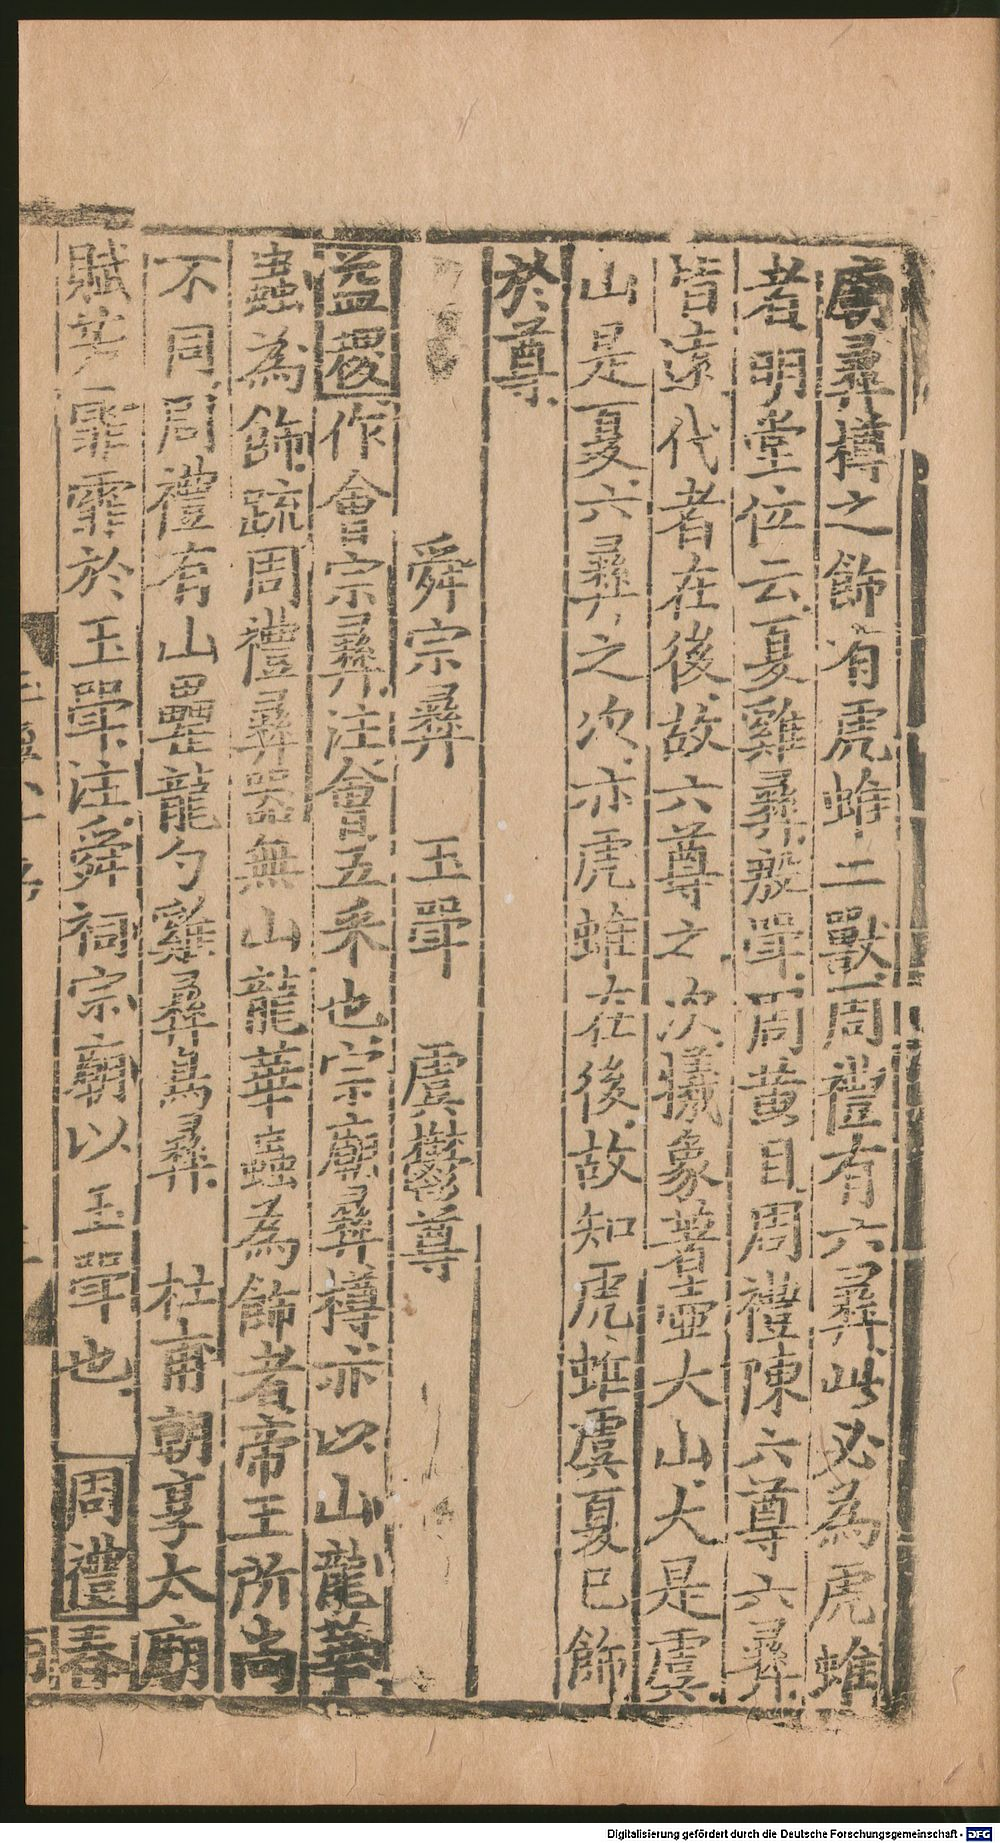 廟彞樽之飾有虎蜼二獸周禮有六彞此必為虎蜼
者明堂位云夏雞彞殷斝周黃目周禮陳六尊六彞
皆遠代者在後故六尊之次犧象著壺大山大是虞
山是夏六彞之次亦虎蜼在後故知虎蜼虞夏已飾
於尊
舜宗彞 玉斝 虞 尊
益稷作會宗彞注會五采也宗廟彞樽亦以山龍華
蟲為飾疏周禮彞器無山龍華蟲為飾者帝王所尚
不同周禮有山罍龍勺雞彞鳥彞 杜甫朝享太廟
賦芳霏霏於玉斝注舜祠宗廟以玉斝也 周禮春
Digitalisierung gefördert durch die Deutsche Forschungsgemeinschaft - DFG